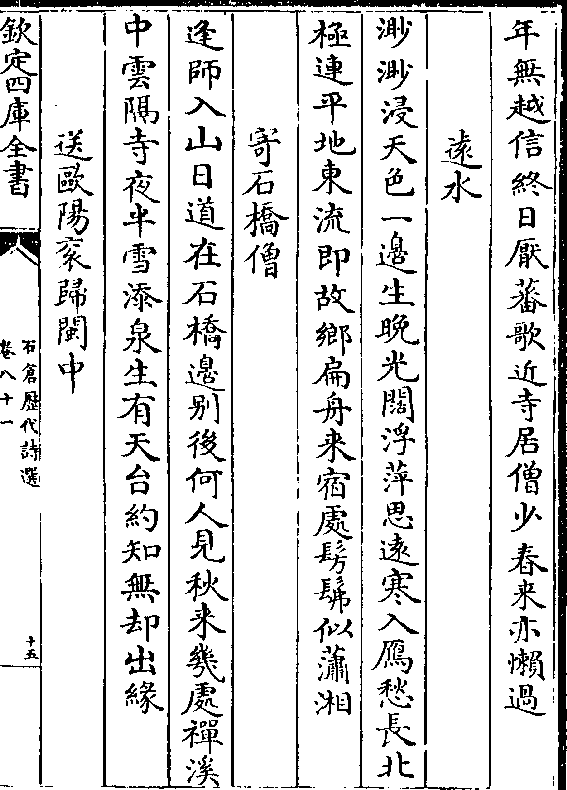 年無越信終日厭蕃歌近寺居僧少春来亦懶過
遠水
渺渺浸天色一邊生晚光闊浮萍思遠寒入鴈愁長北
極連平地東流即故鄉扁舟来宿處髣髴似瀟湘
寄石橋僧
逢師入山日道在石橋邊别後何人見秋来幾處禪溪
中雲隔寺夜半雪添泉生有天台約知無却出緣
送歐陽衮歸閩中
欽定四庫全書
石倉歷代詩選
卷八十一
十五